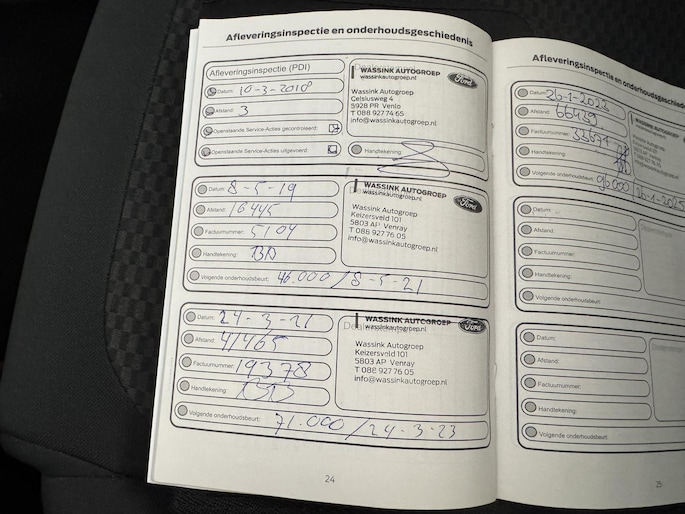 Afleveringsinspectie en onderhoudsgeschiedenis
Afleveringsinspectie (PDI)
Datum: 10-3-2018
Afstand: 3
Openstaande Service-Acties gecontroleerd:
Openstaande Service-Acties uitgevoerd:
WASSINK AUTOGROEP
wassinkautogroep.nl
Ford
Wassink Autogroep
Celsiusweg 4
5928 PR Venlo
T 088 927 74 65
info@wassinkautogroep.nl
Handtekening:
Datum: 8-5-19
Afstand: 16445
Factuurnummer: 5104
Handtekening:
Volgende onderhoudsbeurt: 46.000 / 8-5-21
WASSINK AUTOGROEP
wassinkautogroep.nl
Ford
Wassink Autogroep
Keizersveld 101
5803 AP Venray
T 088 927 76 05
info@wassinkautogroep.nl
Datum: 24-3-21
Afstand: 41465
Factuurnummer: 19378
Handtekening:
Volgende onderhoudsbeurt: 71.000 / 24-3-23
WASSINK AUTOGROEP
wassinkautogroep.nl
Ford
Wassink Autogroep
Keizersveld 101
5803 AP Venray
T 088 927 76 05
info@wassinkautogroep.nl
24
Afleveringsinspectie en onderhoudsgeschied
Datum: 26-1-2023
Afstand: 66439
Factuurnummer:
Handtekening:
Volgende onderhoudsbeurt: 96000 26-1-2025
WASSINK AUTOG
Datum:
Afstand:
Factuurnummer:
Handtekening:
Volgende onderhoudsbeurt:
Datum:
Afstand:
Factuurnummer:
Handtekening:
Volgende onderhoudsbeurt:
25